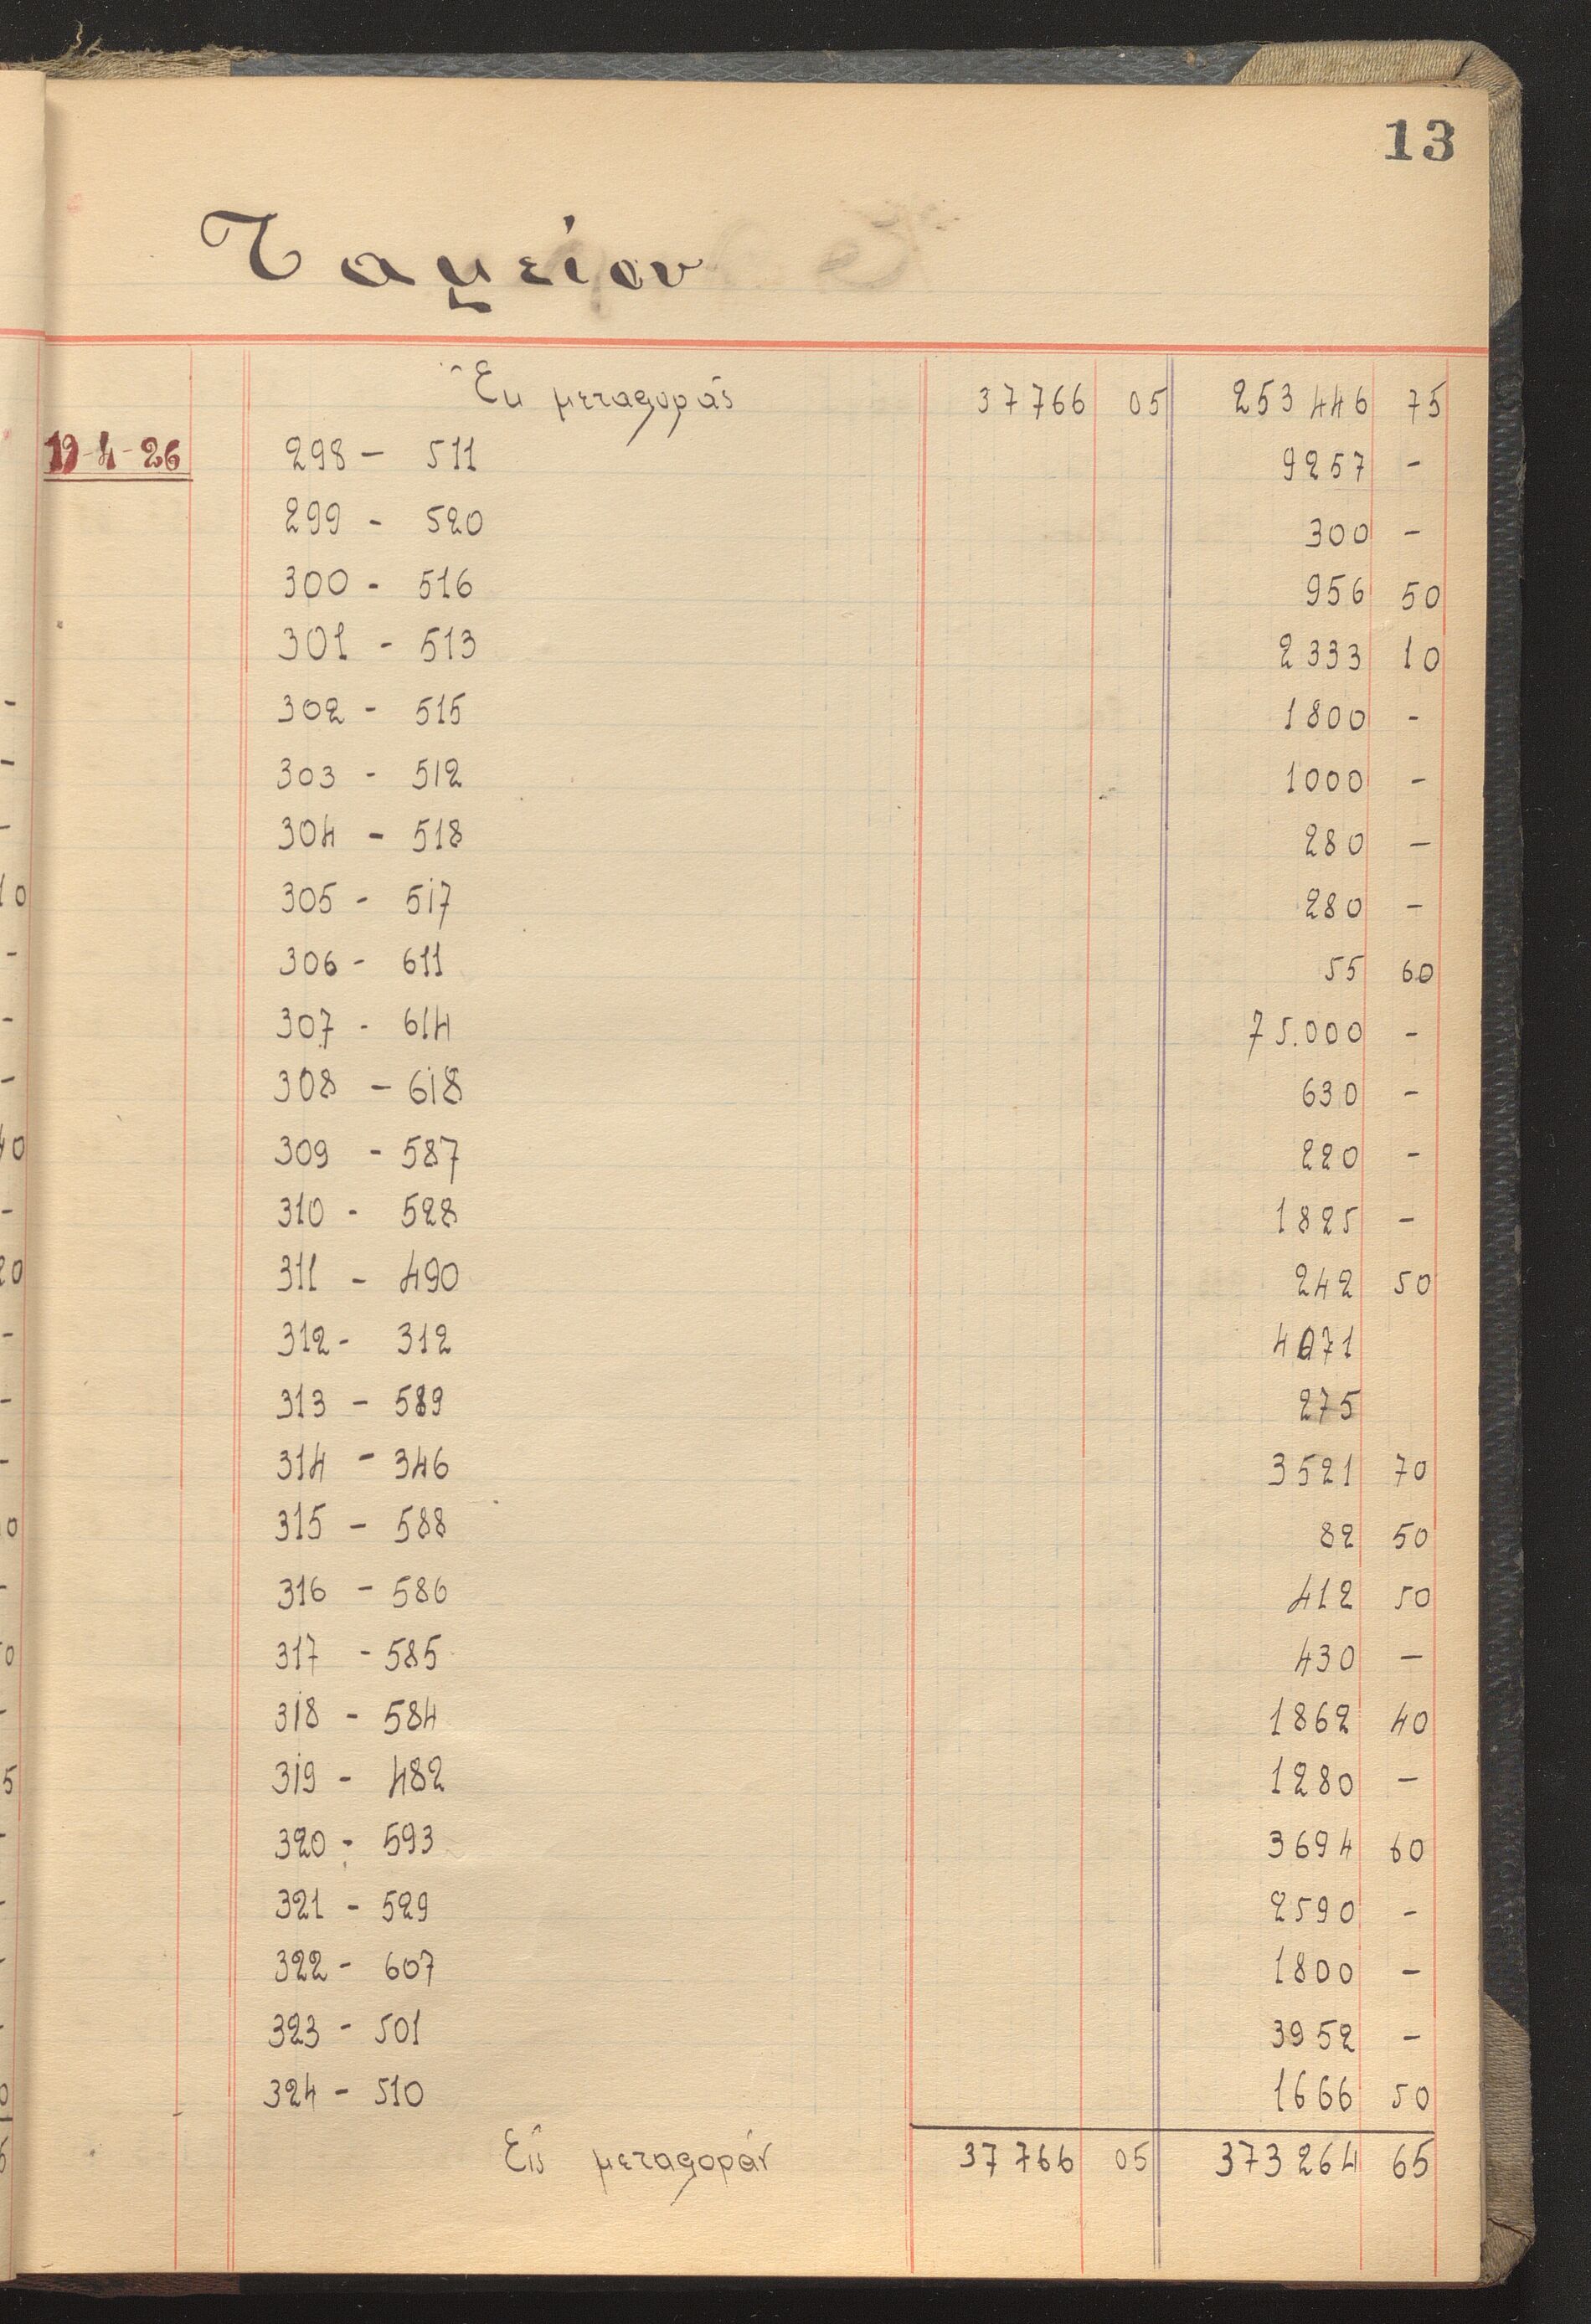 13
Ταμείον
Ἐκ μεταφοράς 37766 05 253446 75
19-4-26 298 - 511 9257 -
299 - 520 300 -
300 - 516 956 50
301 - 513 2333 10
302 - 515 1800 -
303 - 512 1000 -
304 - 518 280 -
305 - 517 280 -
306 - 611 55 60
307 - 614 75.000 -
308 - 618 630 -
309 - 587 220 -
310 - 528 1825 -
311 - 490 242 50
312 - 312 4071
313 - 589 275
314 - 346 3521 70
315 - 588 82 50
316 - 586 412 50
317 - 585 430 -
318 - 584 1862 40
319 - 482 1280 -
320 - 593 3694 60
321 - 529 2590 -
322 - 607 1800 -
323 - 501 3952 -
324 - 510 1666 50
Εἰς μεταφοράν 37766 05 373264 65